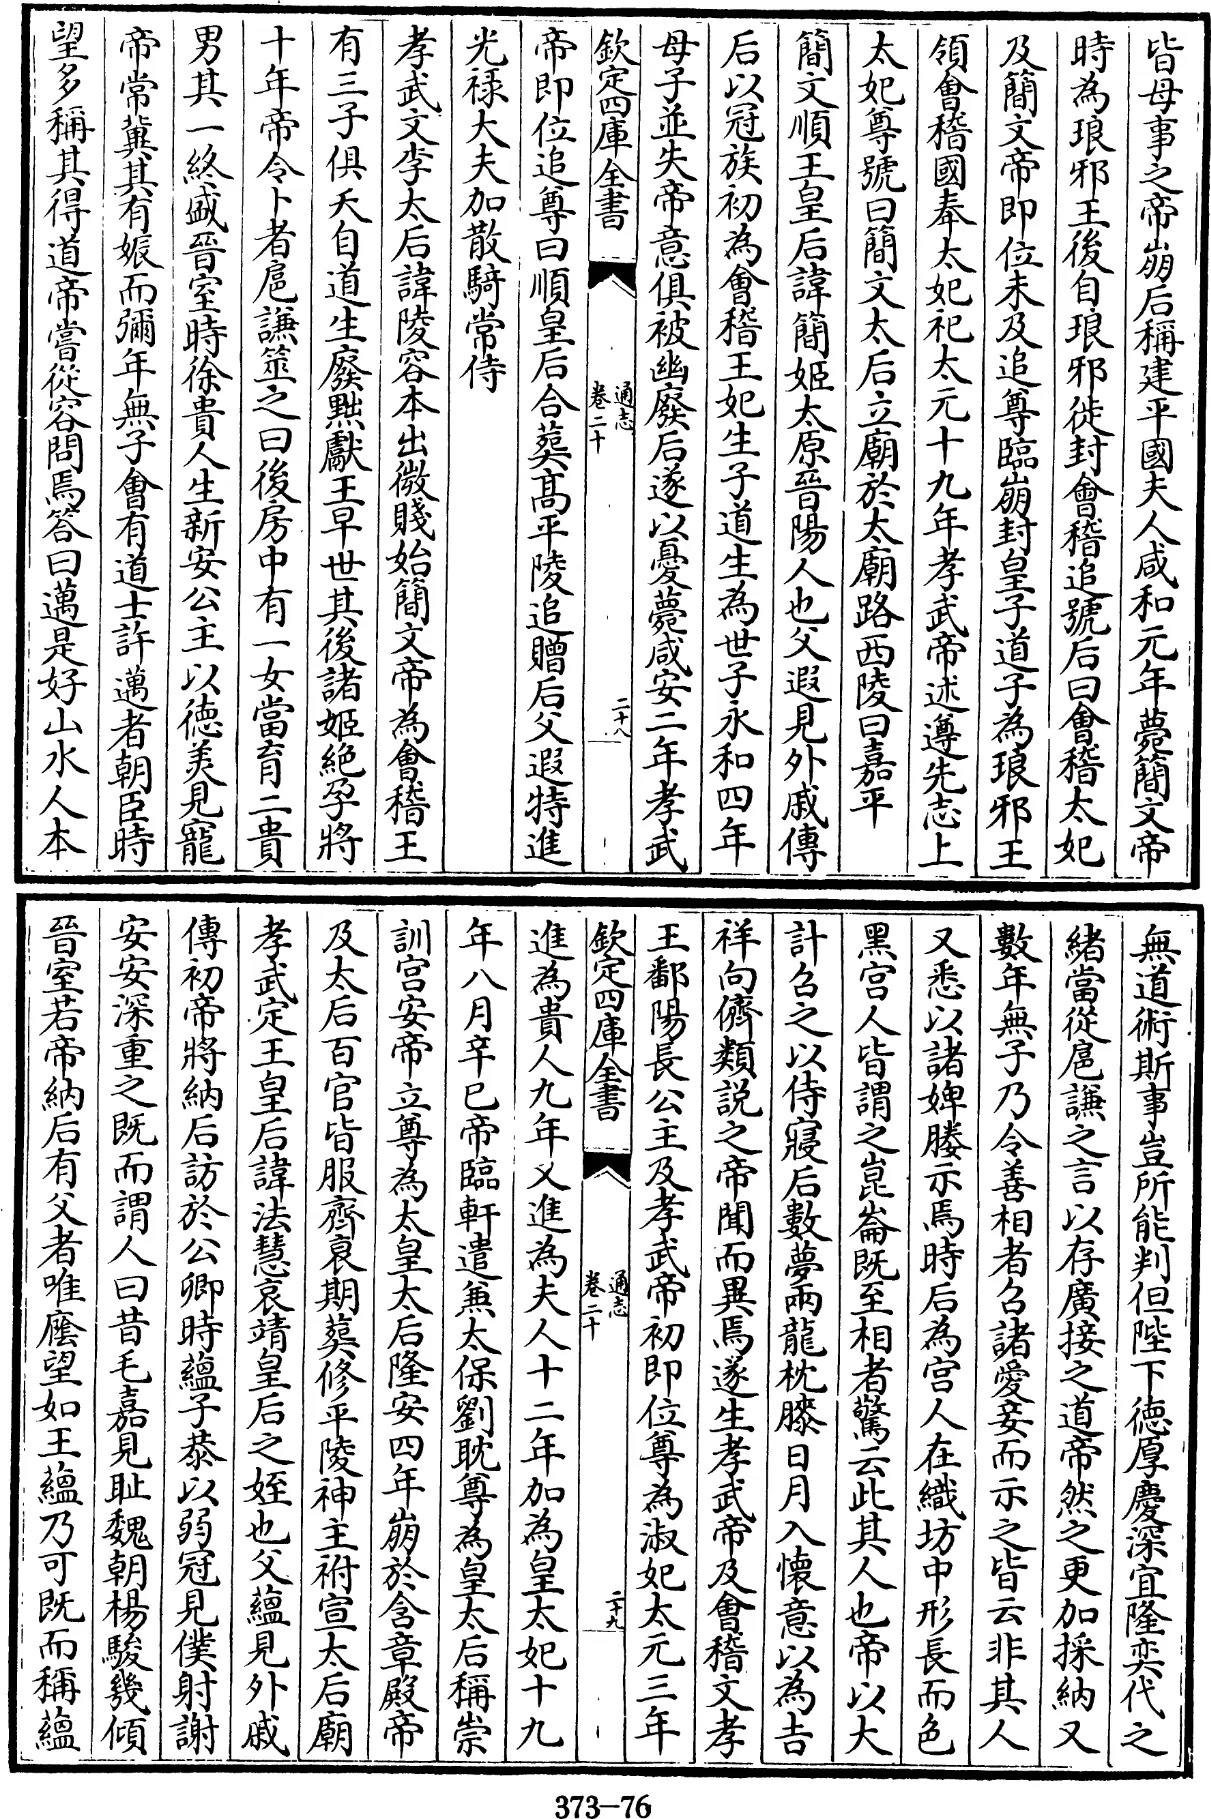 皆母事之帝崩后稱建平國夫人咸和元年薨簡文帝
時為琅邪王後自琅邪徙封會稽追號后曰會稽太妃
及簡文帝即位未及追尊臨崩封皇子道子為琅邪王
領會稽國奉太妃祀太元十九年孝武帝述遵先志上
太妃尊號曰簡文太后立廟於太廟路西陵曰嘉平
簡文順王皇后諱簡姬太原晉陽人也父遐見外戚傳
后以冠族初為會稽王妃生子道生為世子永和四年
母子並失帝意俱被幽廢后遂以憂薨咸安二年孝武
欽定四庫全書
通志
卷二十
二十八
帝即位追尊曰順皇后合葬髙平陵追贈后父遐特進
光祿大夫加散騎常侍
孝武文李太后諱陵容本出微賤始簡文帝為會稽王
有三子俱夭自道生廢黜獻王早世其後諸姬絶孕將
十年帝令卜者扈謙筮之曰後房中有一女當育二貴
男其一終盛晉室時徐貴人生新安公主以徳美見寵
帝常冀其有娠而彌年無子會有道士許邁者朝臣時
望多稱其得道帝嘗從容問焉答曰邁是好山水人本
無道術斯事豈所能判但陛下徳厚慶深宜隆奕代之
緒當從扈謙之言以存廣接之道帝然之更加採納又
數年無子乃令善相者召諸愛妾而示之皆云非其人
又悉以諸婢媵示焉時后為宫人在織坊中形長而色
黑宫人皆謂之崑崙既至相者驚云此其人也帝以大
計召之以侍寢后數夢兩龍枕膝日月入懷意以為吉
祥向儕類說之帝聞而異焉遂生孝武帝及會稽文孝
王鄱陽長公主及孝武帝初即位尊為淑妃太元三年
欽定四庫全書
通志
卷二十
二十九
進為貴人九年又進為夫人十二年加為皇太妃十九
年八月辛巳帝臨軒遣兼太保劉耽尊為皇太后稱崇
訓宫安帝立尊為太皇太后隆安四年崩於含章殿帝
及太后百官皆服齊衰期葬修平陵神主祔宣太后廟
孝武定王皇后諱法慧哀靖皇后之姪也父蘊見外戚
傳初帝將納后訪於公卿時蘊子恭以弱冠見僕射謝
安安深重之既而謂人曰昔毛嘉見耻魏朝楊駿幾傾
晉室若帝納后有父者唯廕望如王蘊乃可既而稱蘊
373-76